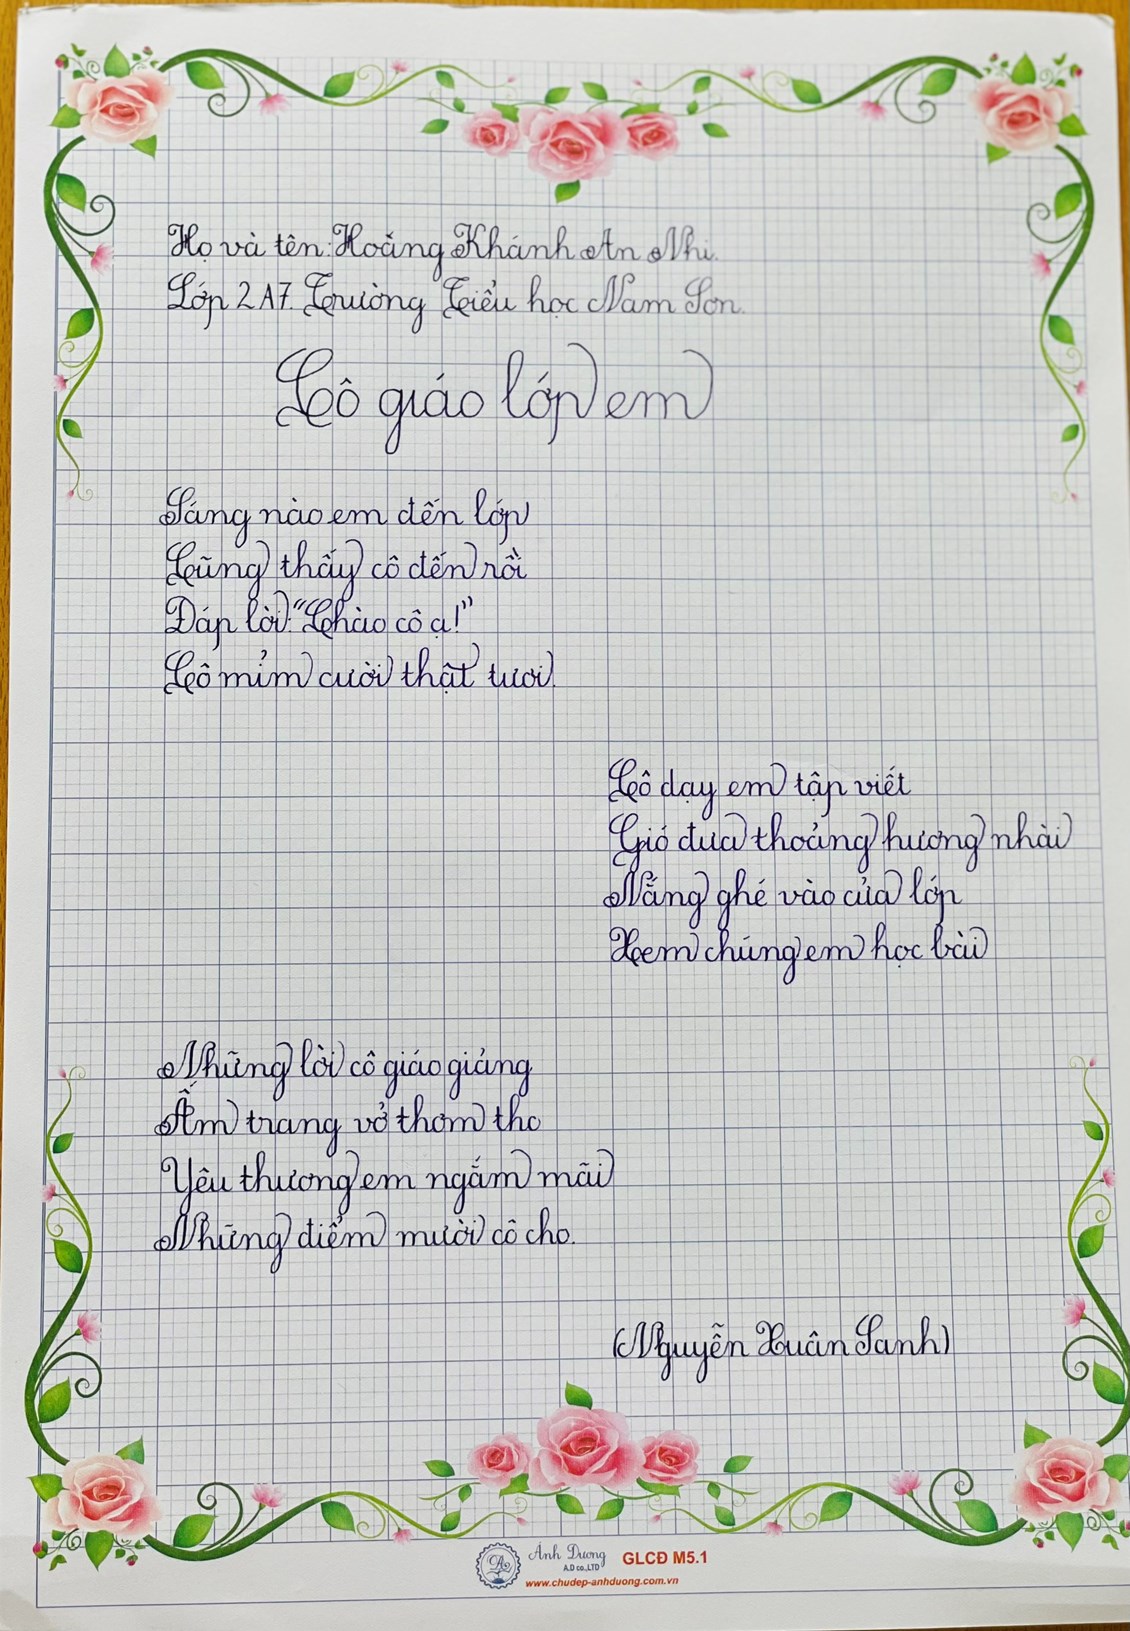 Họ và tên: Hoàng Khánh An Nhi.
Lớp 2A7. Trường Tiểu học Nam Sơn.
Cô giáo lớp em
Sáng nào em đến lớp
Cũng thấy cô đến rồi
Đáp lời: "Chào cô ạ!"
Cô mỉm cười thật tươi.
Cô dạy em tập viết
Gió đưa thoảng hương nhài
Nắng ghé vào cửa lớp
Xem chúng em học bài
Những lời cô giáo giảng
Ấm trang vở thơm tho
Yêu thương em ngắm mãi
Những điểm mười cô cho.
(Nguyễn Xuân Sanh)
Ánh Dương GLCĐ M5.1
A.D co.,LTD
www.chudep-anhduong.com.vn